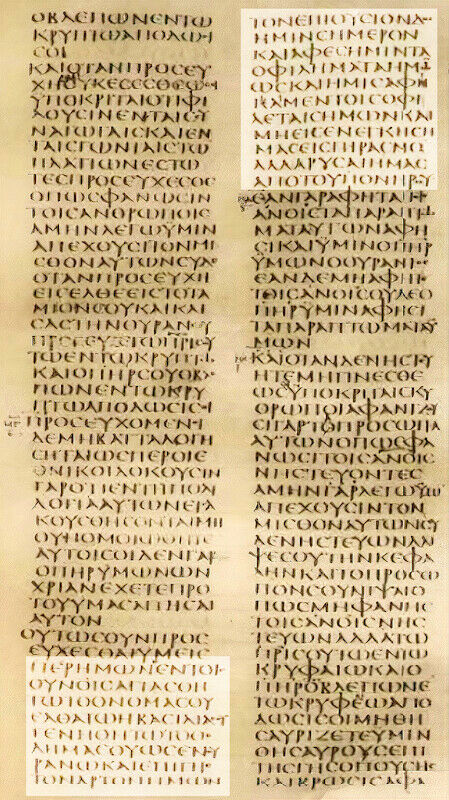 ΟΒΛΕΠΩΝΕΝΤΩ
ΚΡΥΠΤΩΑΠΟΔΩϹΙ
ϹΟΙ
ΚΑΙΟΤΑΝΠΡΟϹΕΥ
ΧΗΟΥΚΕϹΕϹΘΕΩϹ
ΥΠΟΚΡΙΤΑΙΟΤΙΦΙ
ΛΟΥϹΙΝΕΝΤΑΙϹΥ
ΝΑΓΩΓΑΙϹΚΑΙΕΝ
ΤΑΙϹΓΩΝΙΑΙϹΤΩ
ΠΛΑΤΙΩΝΕϹΤΩ
ΤΕϹΠΡΟϹΕΥΧΕϹΘΕ
ΟΠΩϹΦΑΝΩϹΙΝ
ΤΟΙϹΑΝΘΡΩΠΟΙϹ
ΑΜΗΝΛΕΓΩΥΜΙΝ
ΑΠΕΧΟΥϹΙΤΟΝΜΙ
ϹΘΟΝΑΥΤΩΝϹΥΔΕ
ΟΤΑΝΠΡΟϹΕΥΧΗ
ΕΙϹΕΛΘΕΕΙϹΤΟΤΑ
ΜΙΟΝϹΟΥΚΑΙΚΛΙ
ϹΑϹΤΗΝΘΥΡΑΝϹΟΥ
ΠΡΟϹΕΥΞΕΤΩΠΡΙϹΟΥ
ΤΩΕΝΤΩΚΡΥΠΤΩ
ΚΑΙΟΠΗΡϹΟΥΟΒΛΕ
ΠΩΝΕΝΤΩΚΡΥ
ΠΤΩΑΠΟΔΩϹΙϹΟΙ
ΠΡΟϹΕΥΧΟΜΕΝΟΙ
ΔΕΜΗΒΑΤΤΑΛΟΓΗ
ϹΗΤΑΙΩϹΠΕΡΟΙΕ
ΘΝΙΚΟΙΔΟΚΟΥϹΙΝ
ΓΑΡΟΤΙΕΝΤΗΠΟΛΥ
ΛΟΓΙΑΑΥΤΩΝΕΙϹΑ
ΚΟΥϹΘΗϹΟΝΤΑΙΜΗ
ΟΥΝΟΜΟΙΩΘΗΤΕ
ΑΥΤΟΙϹΟΙΔΕΝΓΑΡ
ΟΠΗΡΥΜΩΝΩΝ
ΧΡΙΑΝΕΧΕΤΕΠΡΟ
ΤΟΥΥΜΑϹΑΙΤΗϹΑΙ
ΑΥΤΟΝ
ΟΥΤΩϹΟΥΝΠΡΟϹ
ΕΥΧΕϹΘΑΙΥΜΕΙϹ
ΠΕΡΗΜΩΝΟΕΝΤΟΙϹ
ΟΥΝΟΙϹΑΓΙΑϹΘΗ
ΤΩΤΟΟΝΟΜΑϹΟΥ
ΕΛΘΑΤΩΗΒΑϹΙΛΙΑϹΟΥ
ΓΕΝΗΘΗΤΩΤΟΘΕ
ΛΗΜΑϹΟΥΩϹΕΝΟΥ
ΡΑΝΩΚΑΙΕΠΙΓΗϹ
ΤΟΝΑΡΤΟΝΗΜΩΝ
ΤΟΝΕΠΙΟΥϹΙΟΝΔΟϹ
ΗΜΙΝϹΗΜΕΡΟΝ
ΚΑΙΑΦΕϹΗΜΙΝΤΑ
ΟΦΙΛΗΜΑΤΑΗΜΩΝ
ΩϹΚΑΙΗΜΙϹΑΦΗ
ΚΑΜΕΝΤΟΙϹΟΦΙ
ΛΕΤΑΙϹΗΜΩΝΚΑΙ
ΜΗΕΙϹΕΝΕΓΚΗϹΗ
ΜΑϹΕΙϹΠΙΡΑϹΜΟΝ
ΑΛΛΑΡΥϹΑΙΗΜΑϹ
ΑΠΟΤΟΥΠΟΝΗΡΟΥ
ΕΑΝΓΑΡΑΦΗΤΑΙΤΟΙϹ
ΑΝΟΙϹΤΑΠΑΡΑΠΤΩ
ΜΑΤΑΑΥΤΩΝΑΦΗ
ϹΙΚΑΙΥΜΙΝΟΠΗΡ
ΥΜΩΝΟΟΥΡΑΝΙΟϹ
ΕΑΝΔΕΜΗΑΦΗΤΕ
ΤΟΙϹΑΝΟΙϹΟΥΔΕΟ
ΠΗΡΥΜΙΝΑΦΗϹΙ
ΤΑΠΑΡΑΠΤΩΜΑΤΑΥ
ΜΩΝ
ΚΑΙΟΤΑΝΔΕΝΗϹΤΕΥ
ΗΤΕΜΗΓΙΝΕϹΘΕ
ΩϹΥΠΟΚΡΙΤΑΙϹΚΥ
ΘΡΩΠΟΙΑΦΑΝΙΖΟΥ
ϹΙΓΑΡΤΟΠΡΟϹΩΠΟΝ
ΑΥΤΩΝΟΠΩϹΦΑ
ΝΩϹΙΤΟΙϹΑΝΟΙϹ
ΝΗϹΤΕΥΟΝΤΕϹ
ΑΜΗΝΓΑΡΛΕΓΩΥΜΙ
ΑΠΕΧΟΥϹΙΝΤΟΝ
ΜΙϹΘΟΝΑΥΤΩΝϹΥ
ΔΕΝΗϹΤΕΥΩΝΑΛΙ
ΨΕϹΟΥΤΗΝΚΕΦΑ
ΛΗΝΚΑΙΤΟΠΡΟϹΩ
ΠΟΝϹΟΥΝΙΨΑΙΟ
ΠΩϹΜΗΦΑΝΗϹ
ΤΟΙϹΑΝΟΙϹΝΗϹ
ΤΕΥΩΝΑΛΛΑΤΩ
ΠΡΙϹΟΥΤΩΕΝΤΩ
ΚΡΥΦΑΙΩΚΑΙΟ
ΠΗΡΟΒΛΕΠΩΝΕΝ
ΤΩΚΡΥΦΕΩΑΠΟ
ΔΩϹΙϹΟΙΜΗΘΗ
ϹΑΥΡΙΖΕΤΕΥΜΙΝ
ΘΗϹΑΥΡΟΥϹΕΠΙ
ΤΗϹΓΗϹΟΠΟΥϹΗϹ
ΚΑΙΒΡΩϹΙϹΑΦΑ